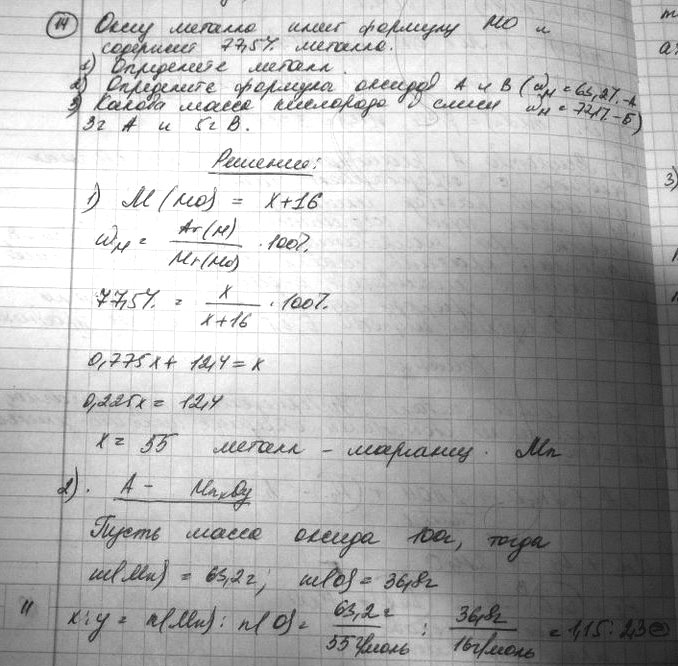 14 Оксид металла имеет формулу MO и
содержит 77,5% металла.
1) Определите металл.
2) Определите формулы оксидов A и B (ω_M = 63,2% - A
3) Какова масса кислорода в смеси ω_M = 72,1% - Б)
3г A и 5г B.
Решение:
1) M(MO) = x+16
ω_M = Ar(M) / Mr(MO) · 100%
77,5% = x / x+16 · 100%
0,775x + 12,4 = x
0,225x = 12,4
x = 55 металл - марганец. Mn
2). A - MnxOy
Пусть масса оксида 100г, тогда
m(Mn) = 63,2г; m(O) = 36,8г
x:y = n(Mn) : n(O) = 63,2г / 55г/моль : 36,8г / 16г/моль = 1,15 : 2,3 =
3)